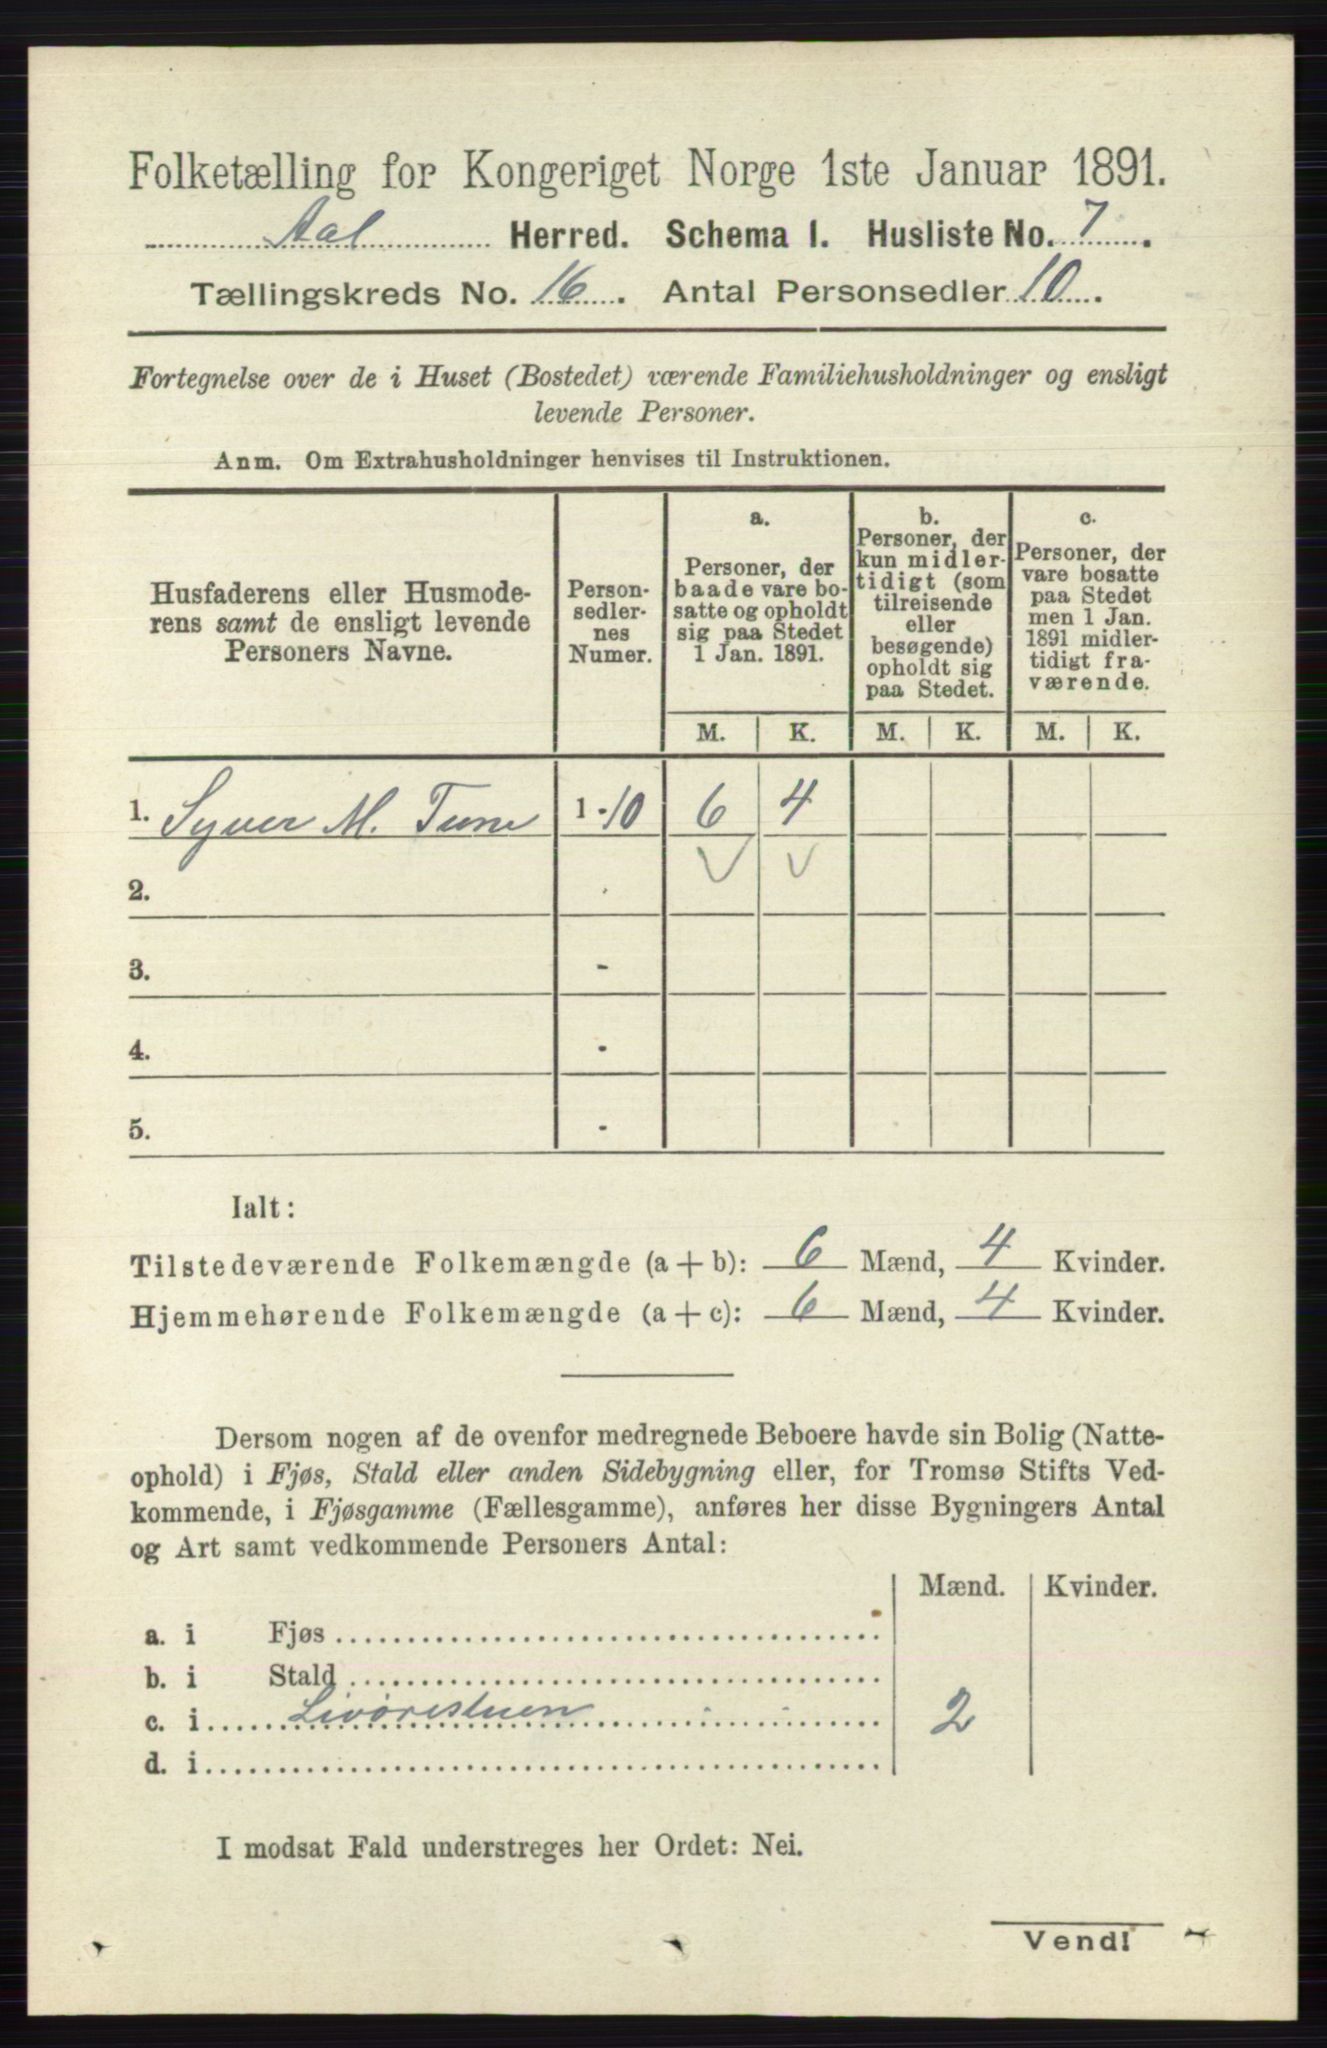 Folketælling for Kongeriget Norge 1ste Januar 1891.
Aal Herred. Schema I. Husliste No. 7.
Tællingskreds No. 16. Antal Personsedler 10.
Fortegnelse over de i Huset (Bostedet) værende Familiehusholdninger og ensligt
levende Personer.
Anm. Om Extrahusholdninger henvises til Instruktionen.
Husfaderens eller Husmode-
rens samt de ensligt levende
Personers Navne.
Person-
sedler-
nes
Numer.
a.
Personer, der
baade vare bo-
satte og opholdt
sig paa Stedet
1 Jan. 1891.
b.
Personer, der
kun midler-
tidigt (som
tilreisende
eller
besøgende)
opholdt sig
paa Stedet.
c.
Personer, der
vare bosatte
paa Stedet
men 1 Jan.
1891 midler-
tidigt fra-
værende.
M. K. M. K. M. K.
1. Syver M. Tune 1-10 6 4
2.
3. -
4. -
5. -
Ialt:
Tilstedeværende Folkemængde (a + b): 6 Mænd, 4 Kvinder.
Hjemmehørende Folkemængde (a + c): 6 Mænd, 4 Kvinder.
Dersom nogen af de ovenfor medregnede Beboere havde sin Bolig (Natte-
ophold) i Fjøs, Stald eller anden Sidebygning eller, for Tromsø Stifts Ved-
kommende, i Fjøsgamme (Fællesgamme), anføres her disse Bygningers Antal
og Art samt vedkommende Personers Antal:
Mænd. Kvinder.
a. i Fjøs
b. i Stald
c. i 2
d. i
I modsat Fald understreges her Ordet: Nei.
Vend!